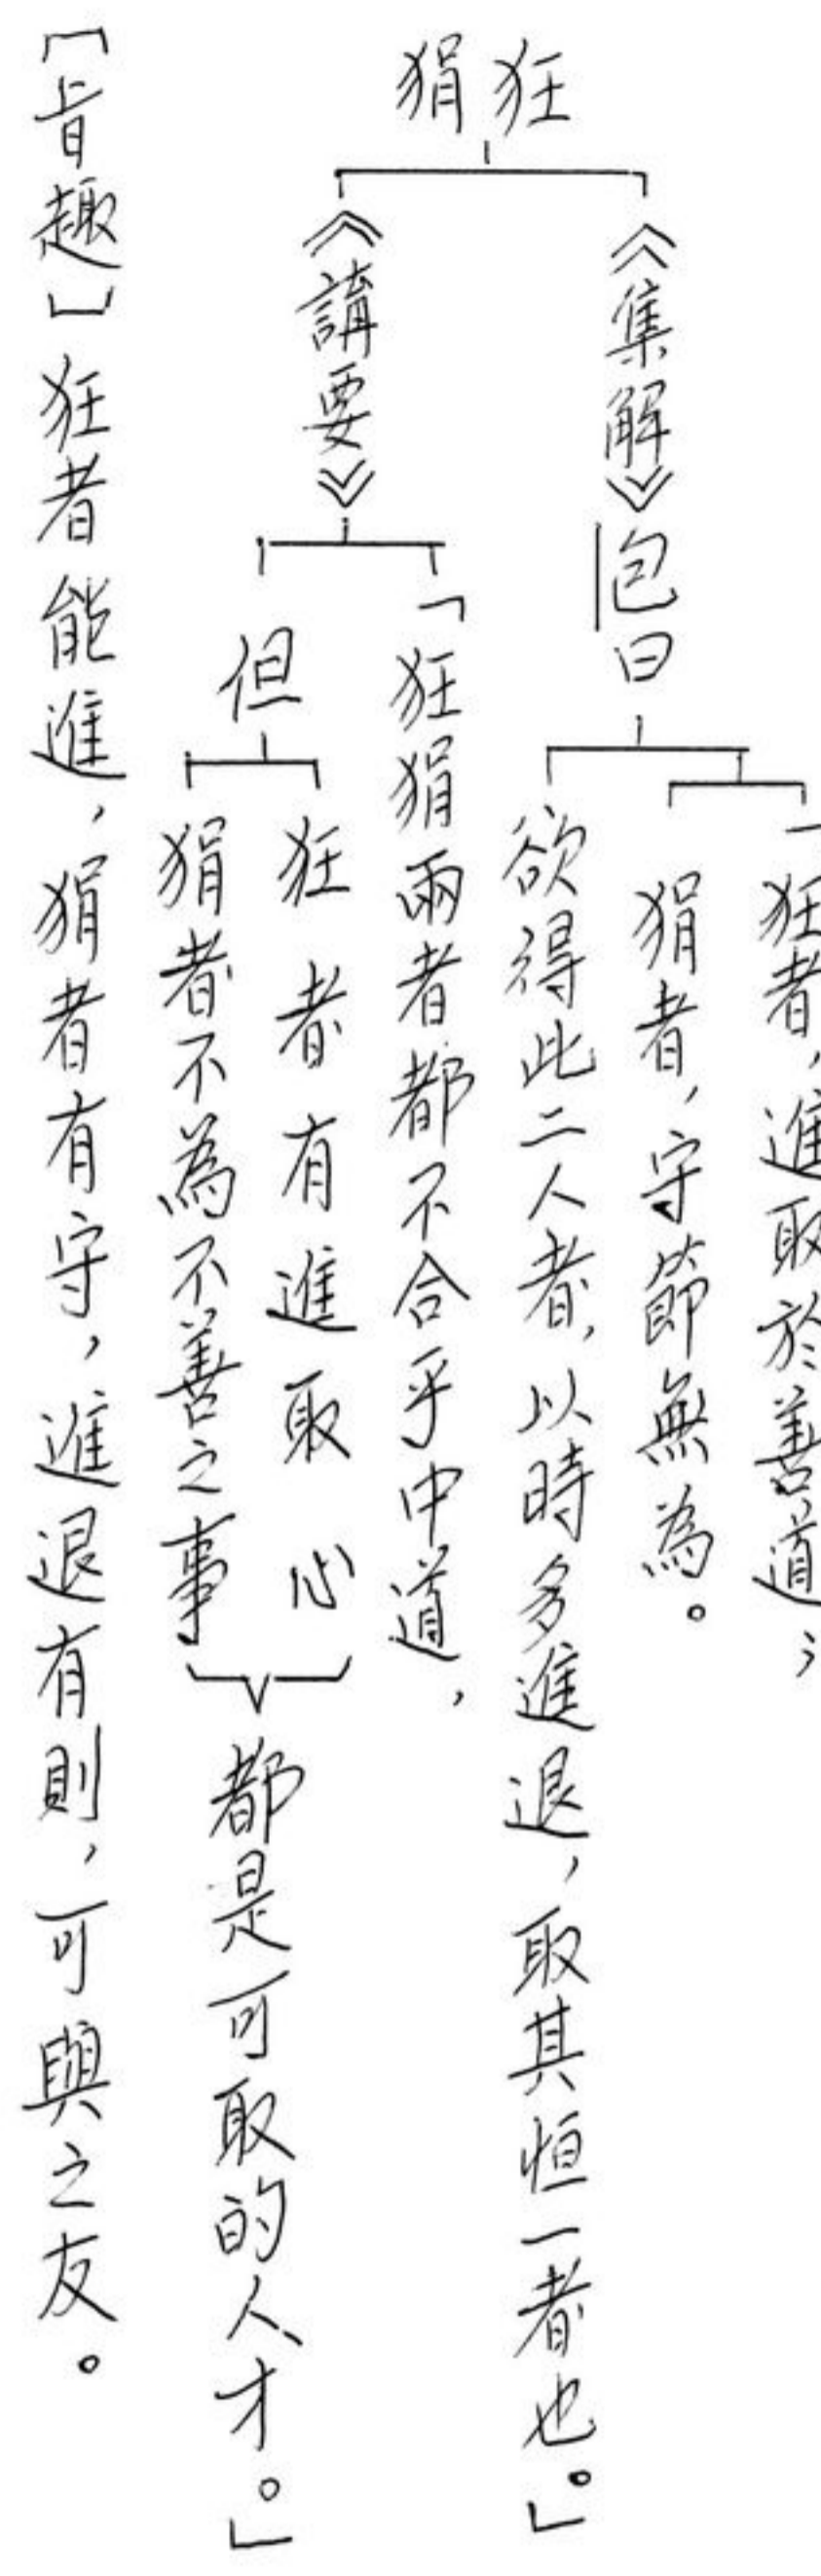 狂狷
《集解》包曰
「狂者，進取於善道；
狷者，守節無為。
欲得此二人者，以時多進退，取其恒一者也。」
《講要》
「狂狷兩者都不合乎中道，
但
狂者有進取心
狷者不為不善之事
都是可取的人才。」
［旨趣］狂者能進，狷者有守，進退有則，可與之友。